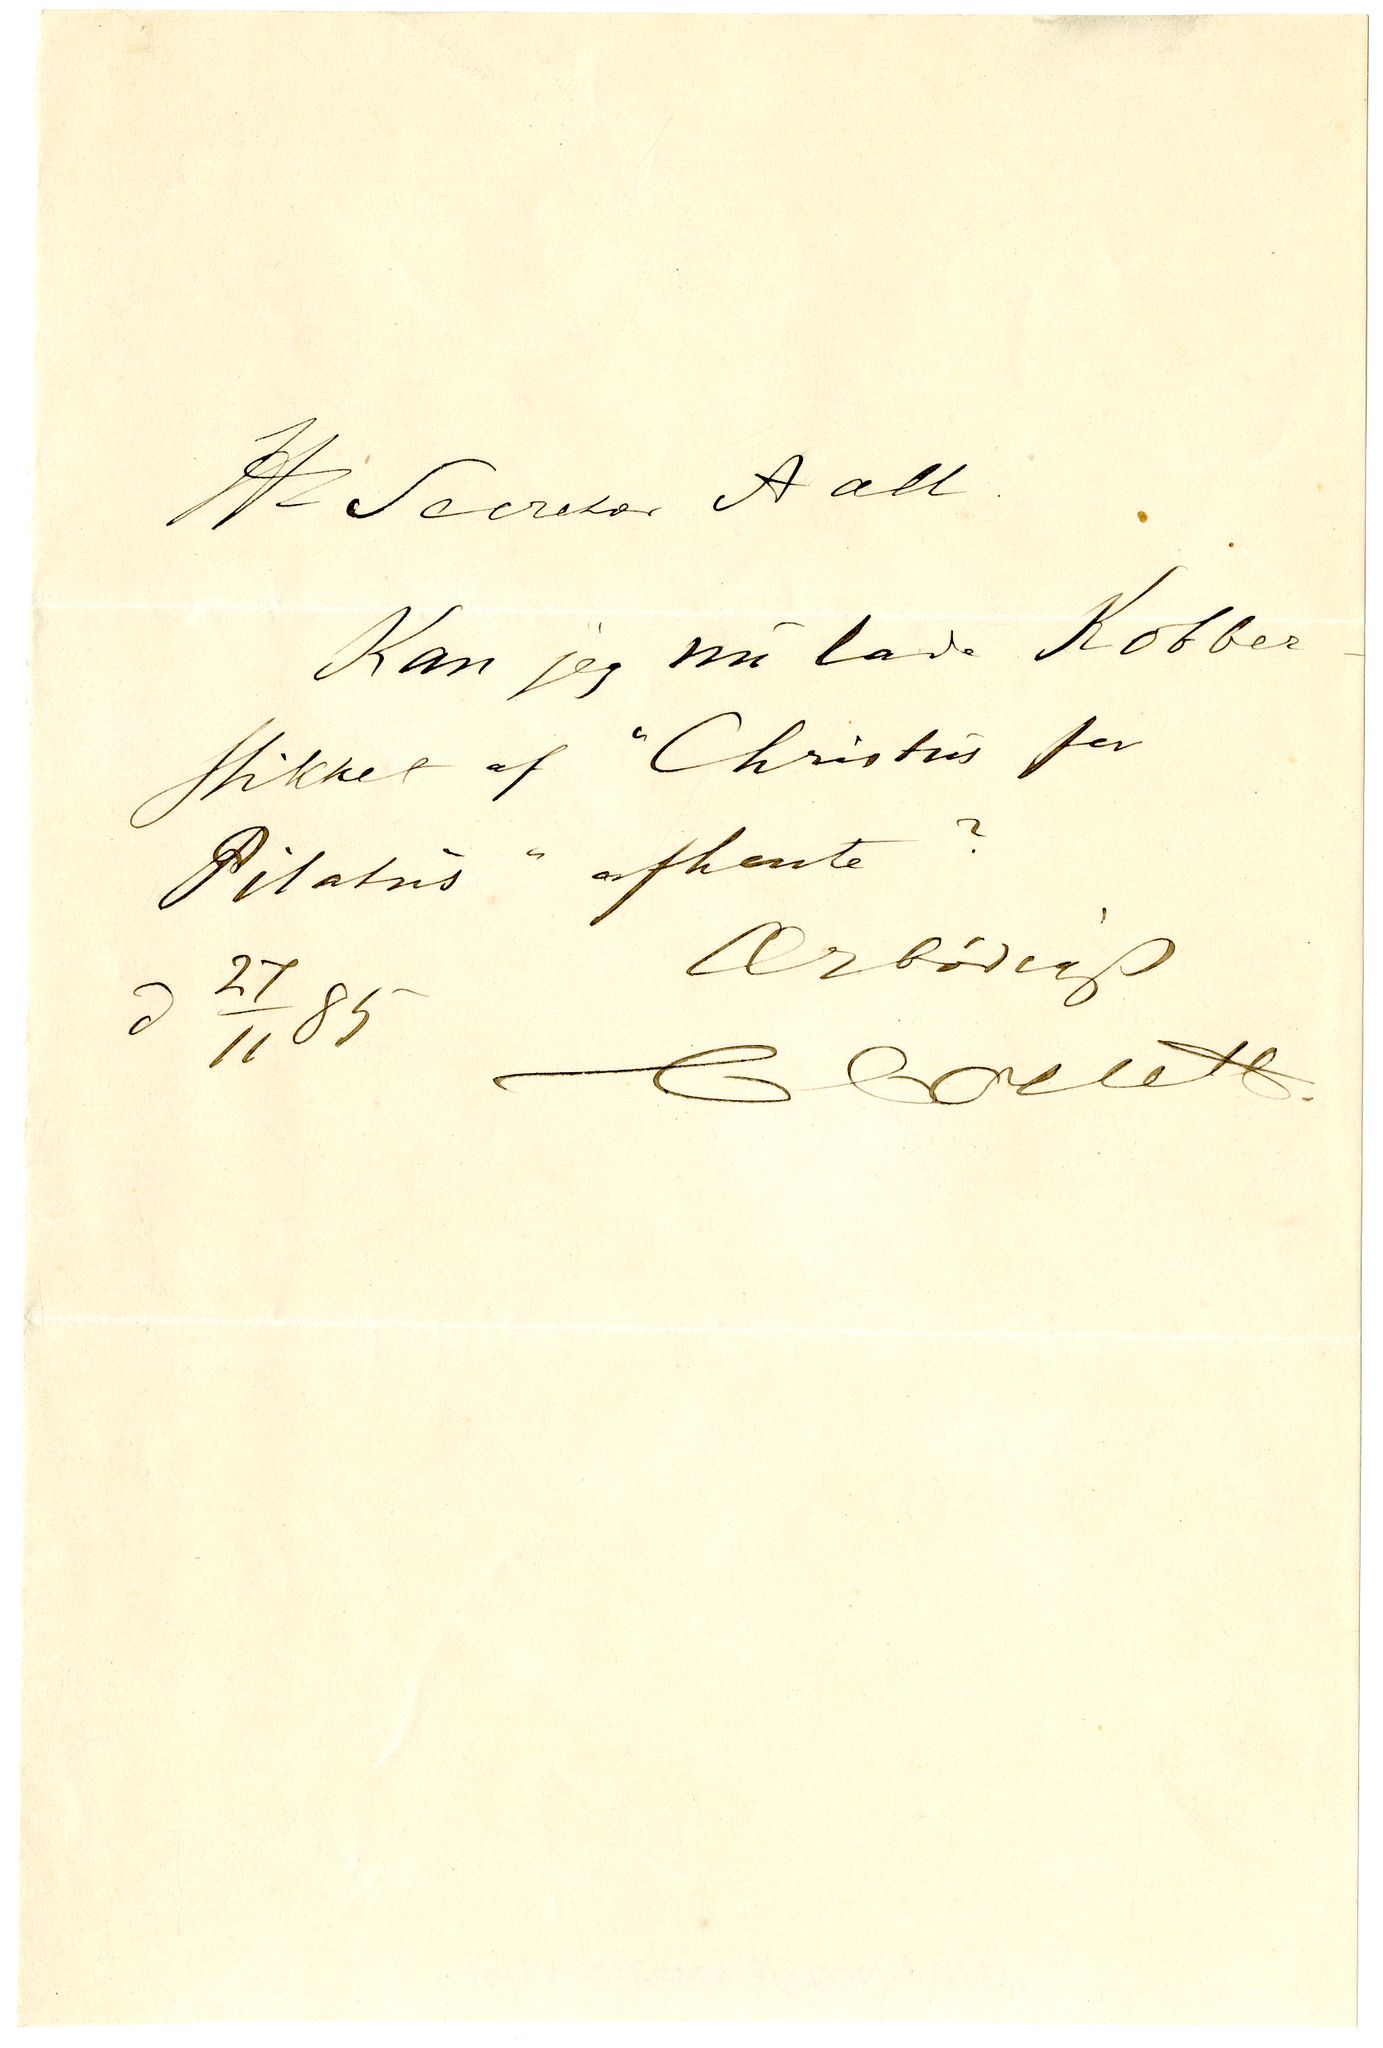 Hr Secretær Aall.
Kan jeg nu lade Kobber-
stikket af "Christus for
Pilatus" afhente?
Ærbødigst
d 27/11 85
C Collett.